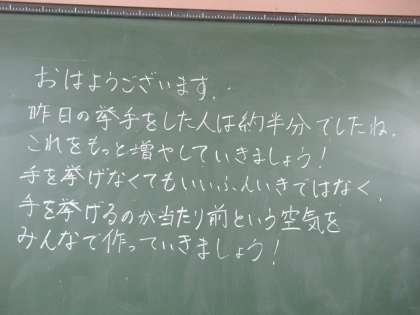 おはようございます.
昨日の挙手をした人は約半分でしたね.
これをもっと増やしていきましょう!
手を挙げなくてもいいふんいきではなく、
手を挙げるのが当たり前という空気を
みんなで作っていきましょう!